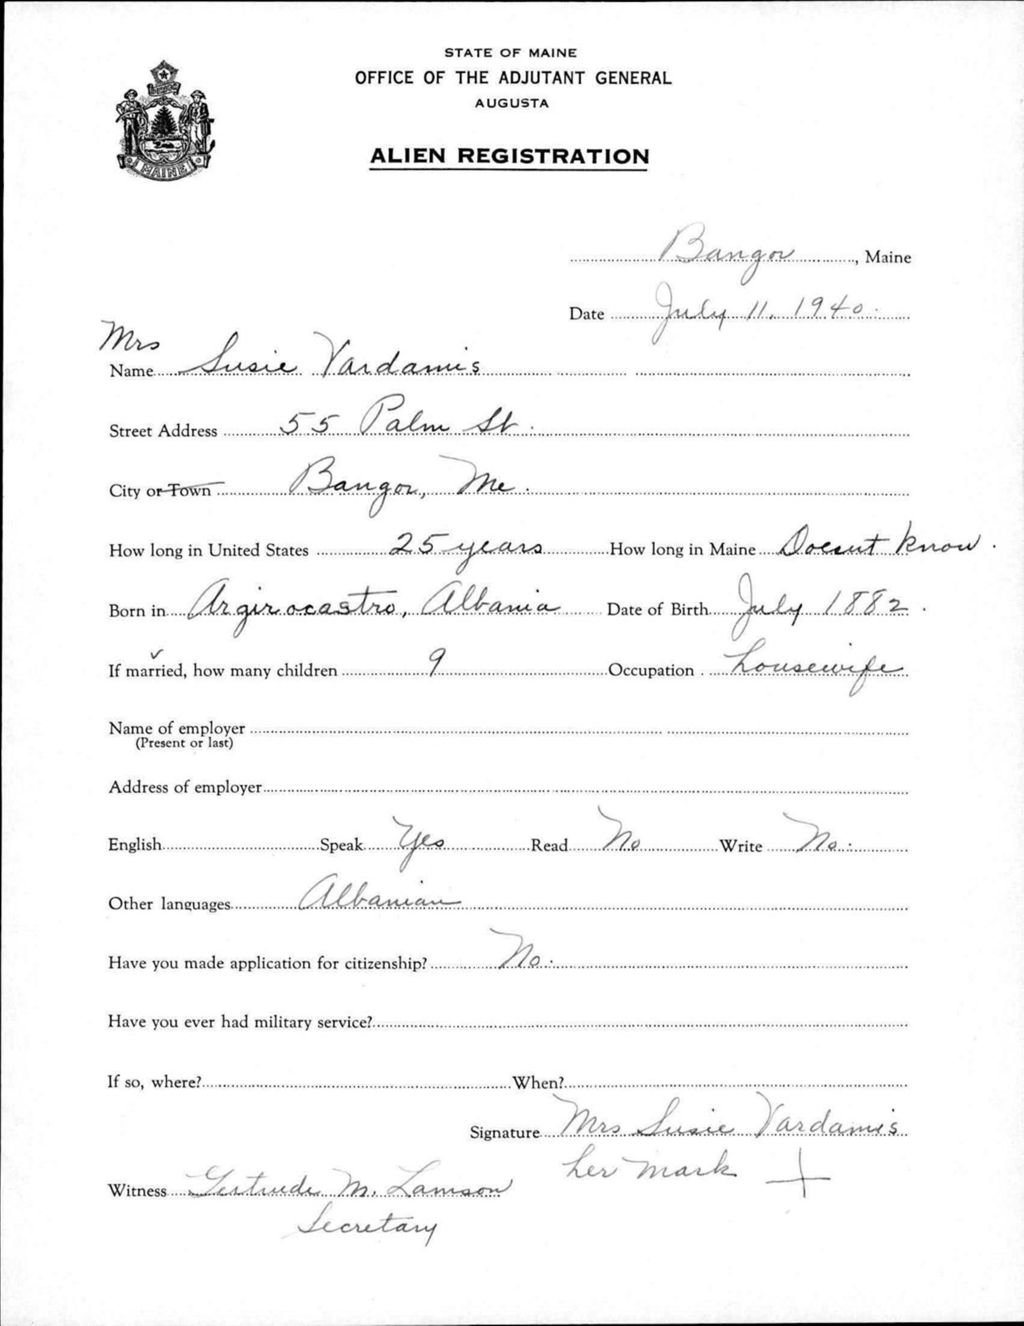 STATE OF MAINE
OFFICE OF THE ADJUTANT GENERAL
AUGUSTA
ALIEN REGISTRATION
MAINE
Bangor, Maine
Date July 11, 1940.
Mrs
Name Susie Vardamis
Street Address 55 Palm St.
City or Town Bangor, Me.
How long in United States 25 years How long in Maine Doesnt know.
Born in Argirocastro, Albania Date of Birth July 1882.
If married, how many children 9 Occupation housewife
Name of employer
(Present or last)
Address of employer
English Speak Yes Read No Write No.
Other languages Albanian
Have you made application for citizenship? No.
Have you ever had military service?
If so, where? When?
Signature Mrs Susie Vardamis
her mark +
Witness Gertrude M. Lamson
Secretary